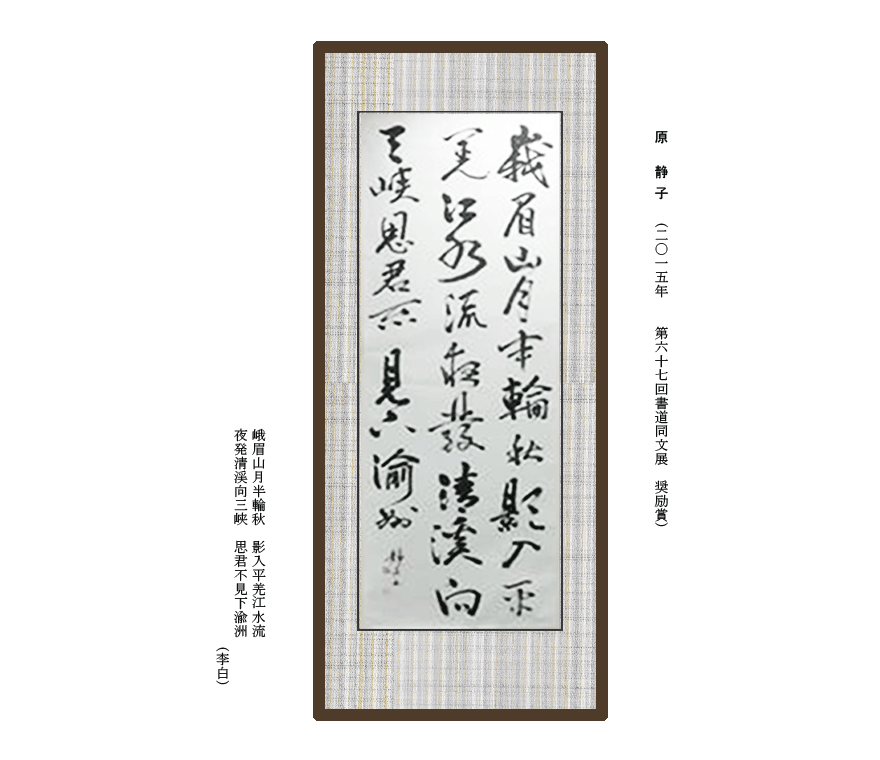 原 静子 (二〇一五年 第六十七回書道同文展 奨励賞)
峨眉山月半輪秋影入平
羌江水流夜發清溪向
三峡思君不見下渝州
峨眉山月半輪秋 影入平羌江水流
夜発清溪向三峡 思君不見下渝洲
(李白)